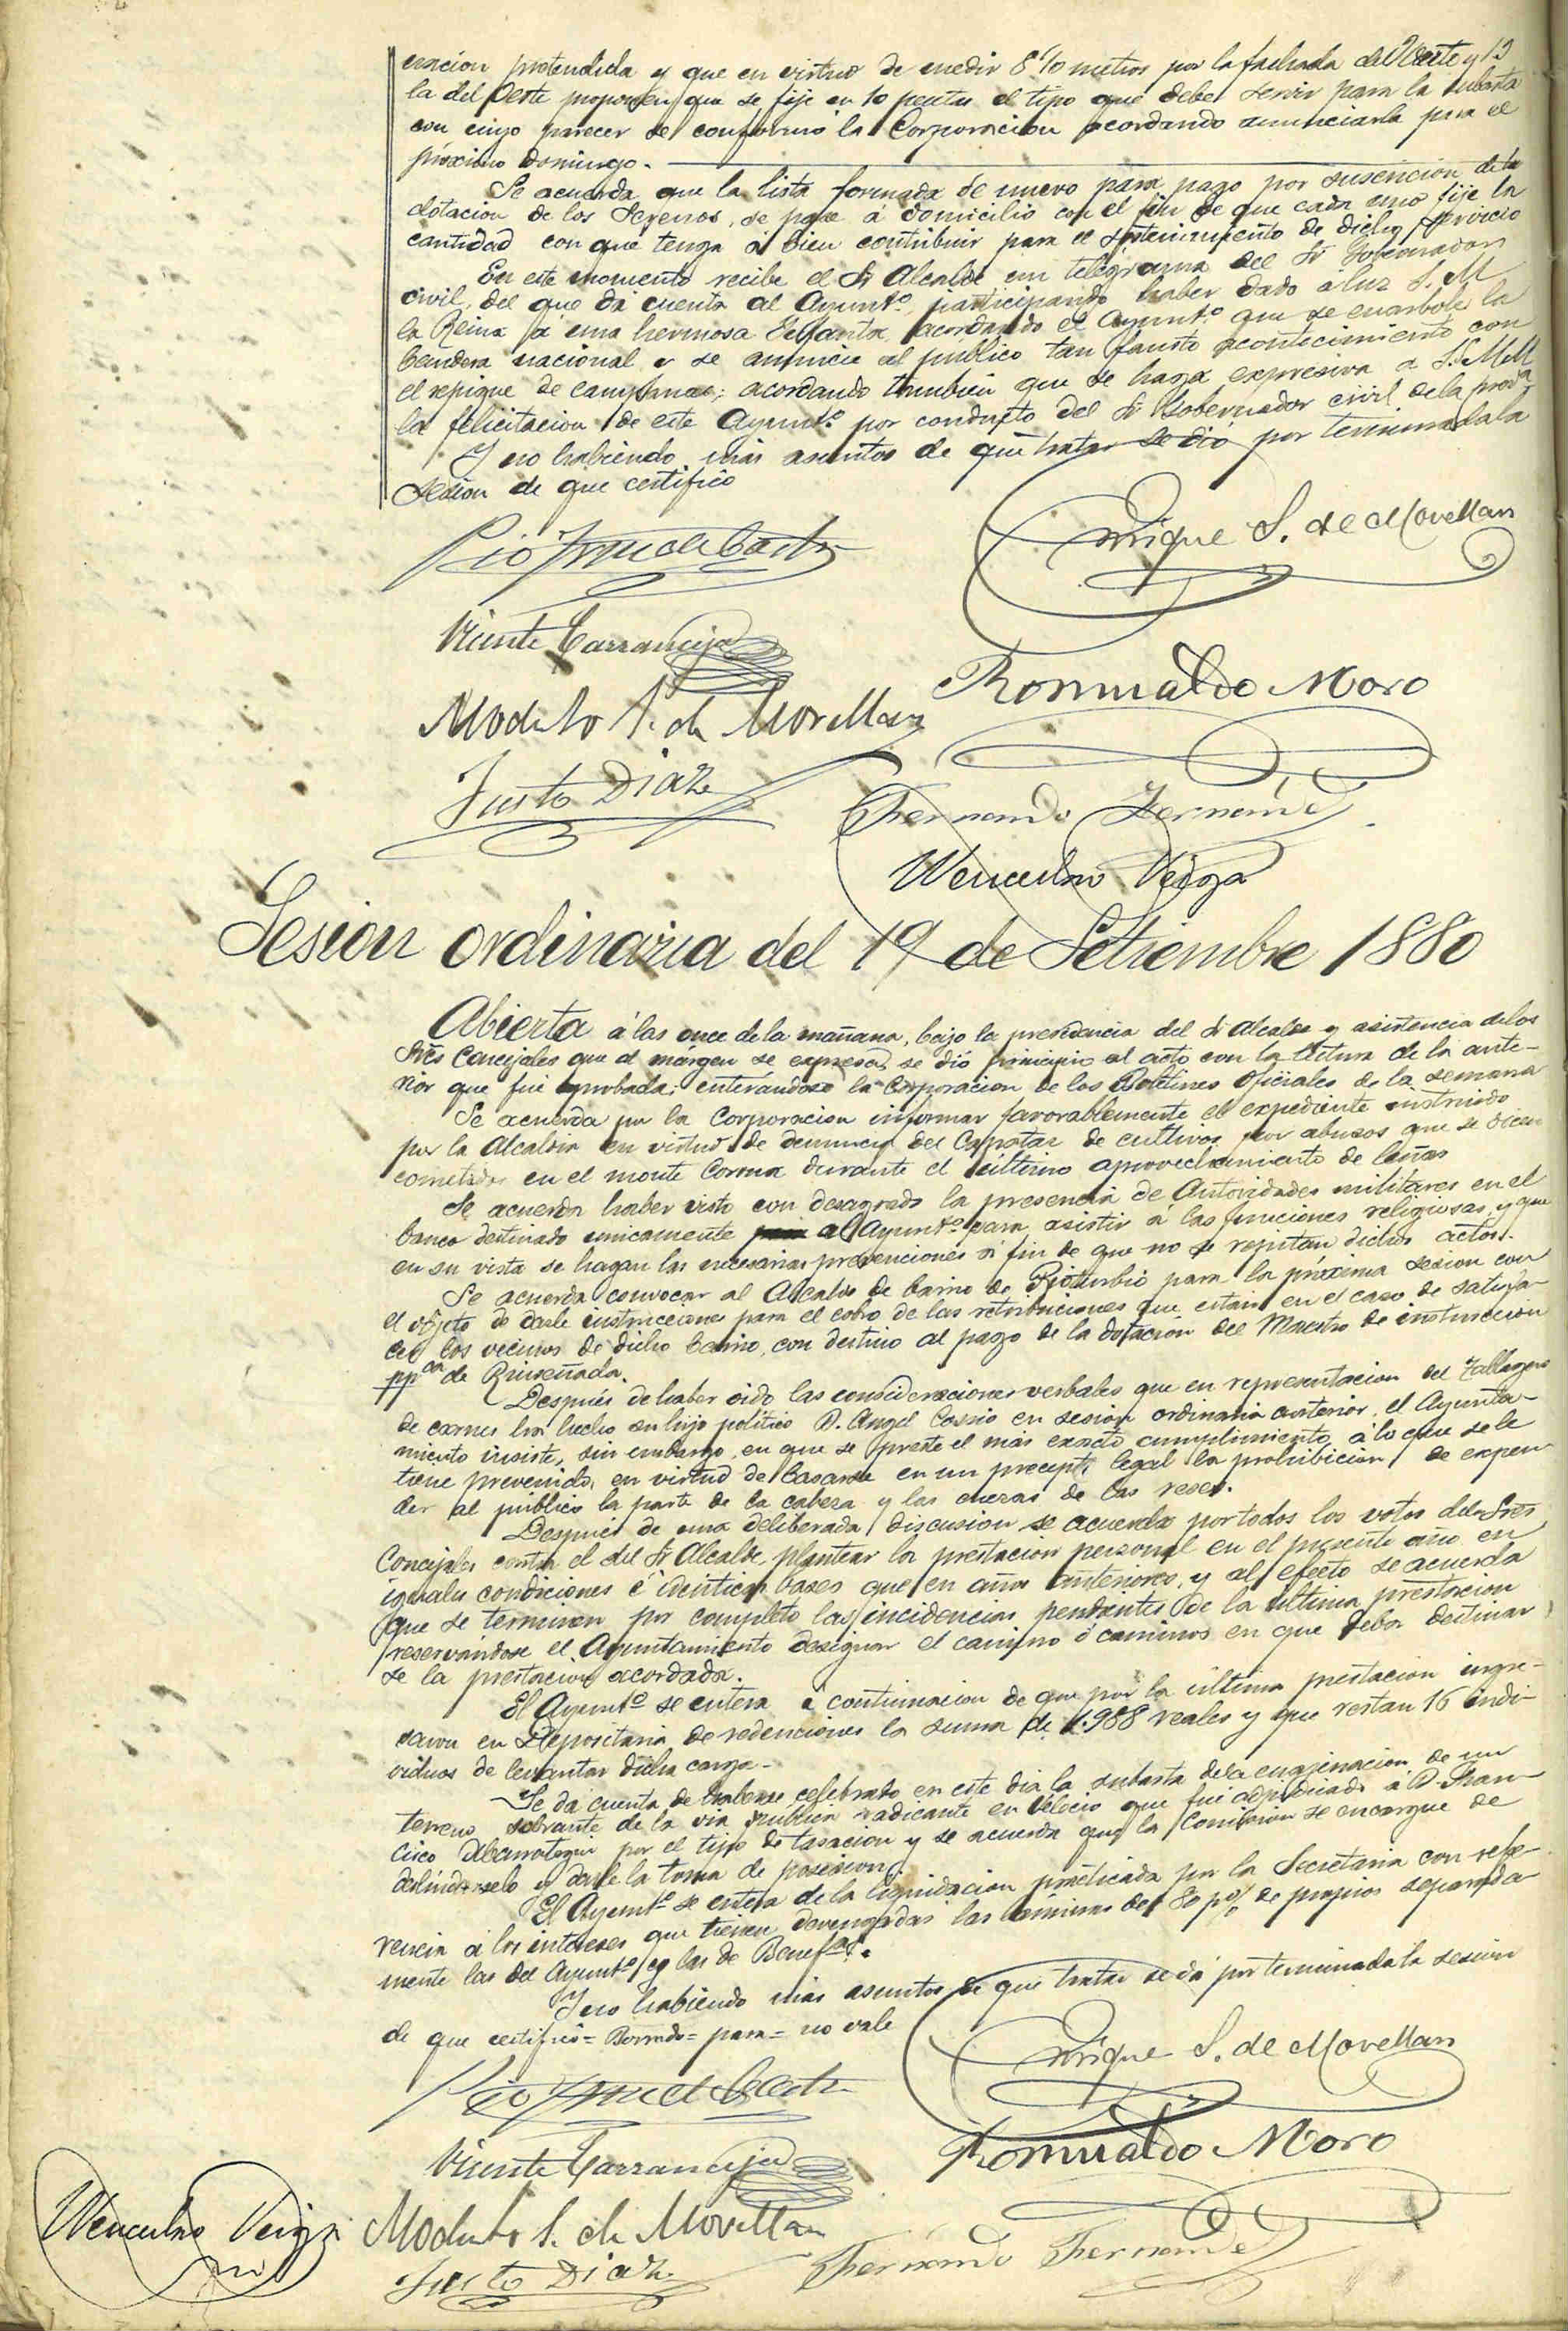 enacion pretendida y que en virtud de medir 8'10 metros por la fachada del Oeste y 12
la del Oeste proponen que se fije en 10 pesetas el tipo que debe servir para la subasta
con cuyo parecer se conformó la Corporacion acordando anunciarla para el
próximo domingo.
Se acuerda que la lista formada de nuevo para pago por suscricion de la
dotacion de los Serenos, se pase á domicilio con el fin de que cada uno fije la
cantidad con que tenga á bien contribuir para el sostenimiento de dicho servicio
En este momento recibe el Sr Alcalde un telégrama del Sr Gobernador
civil, del que dá cuenta al Ayuntº participando haber dado á luz S. M
la Reina á una hermosa Infanta, acordando el Ayuntº que se enarbole la
bandera nacional y se anuncie al publico tan fausto acontecimiento con
el repique de campanas; acordando tambien que se haga expresiva a S.S. M.M.
la felicitacion de este Ayuntº por conducto del Sr Gobernador civil de la provª
Y no habiendo más asuntos de que tratar se dió por terminada la
sesion de que certifico
Enrique S. de Movellan
Vicente Carranceja
Romualdo Moro
Modesto S. de Movellan
Justo Diaz
Fernando Fernandez
Wenceslao Veiga
Sesion ordinaria del 19 de Setiembre 1880
Abierta á las once de la mañana, bajo la presidencia del Sr Alcalde y asistencia de los
Sres Concejales que al margen se expresan se dió principio al acto con la lectura de la ante-
rior que fué aprobada; enterándose la Corporacion de los Boletines Oficiales de la semana
Se acuerda por la Corporacion informar favorablemente el expediente instruido
por la Alcaldia en virtud de denuncia del Capataz de cultivos por abusos que se dicen
cometidos en el monte Corona durante el último aprovechamiento de leñas
Se acuerda haber visto con desagrado la presencia de Autoridades militares en el
banco destinado unicamente para al Ayuntº para asistir á las funciones religiosas, y que
en su vista se hagan las necesarias prevenciones á fin de que no se repitan dichos actos.
Se acuerda convocar al Alcalde de barrio de Rioturbio para la próxima sesion con
el objeto de darle instrucciones para el cobro de las retribuciones que están en el caso de satisfa-
cer los vecinos de dicho barrio, con destino al pago de la dotación del Maestro de instruccion
ppca de Ruiseñada.
Después de haber oido las consideraciones verbales que en representacion del tallagero
de carnes ha hecho su hijo político D. Angel Cossio en sesion ordinaria anterior, el Ayunta-
miento insiste, sin embargo, en que se preste el más exacto cumplimiento á lo que se le
tiene prevenido, en virtud de basarse en un precepto legal la prohibicion de expen
der al público la parte de la cabeza y las cueras de las reses.
Después de una deliberada discusion se acuerda por todos los votos de los Sres
Concejales contra el del Sr Alcalde, plantear la prestacion personal en el presente año en
iguales condiciones é idénticas bases que en años anteriores, y al efecto se acuerda
que se terminen por completo las incidencias pendientes de la última prestacion
reservándose el Ayuntamiento designar el camino ó caminos en que deba destinar
se la prestacion acordada.
El Ayuntº se entera á continuacion de que por la última prestacion ingre-
saron en Depositaria de redenciones la suma de 1.988 reales y que restan 16 indi-
viduos de levantar dicha carga.
Se da cuenta de haberse celebrado en este dia la subasta de la enajenacion de un
terreno sobrante de la via publica radicante en Velecio que fué adjudicado á D. Fran-
cisco por el tipo de tasacion y se acuerda que la Comision se encargue de
deslindárselo y darle la toma de posesion.
El Ayuntº se entera de la liquidacion practicada por la Secretaria con refe-
rencia á los intereses que tienen devengadas las láminas del 80 p% de propios separada-
mente las del Ayuntº y las de Benefª.
Y no habiendo más asuntos de que tratar se dá por terminada la sesion
de que certifico = Borrado = para = no vale
Enrique S. de Movellan
Vicente Carranceja
Romualdo Moro
Wenceslao Veiga
Modesto S. de Movellan
Justo Diaz
Fernando Fernandez